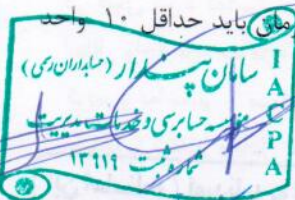 مان باید حداقل ۱۰ واحد
سامان پندار (حسابداران رسمی)
موسسه حسابرسی و خدمات مدیریت
شماره ثبت ۱۳۹۱۹
I A C P A